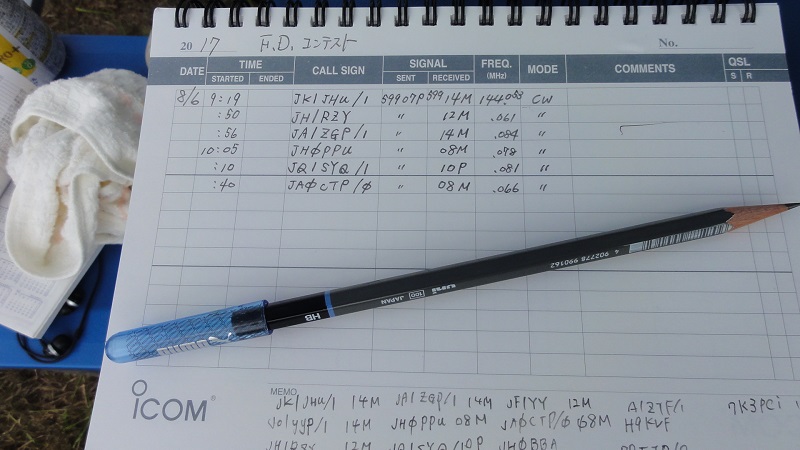 2017 F.D. コンテスト No.
DATE TIME CALL SIGN SIGNAL FREQ. (MHz) MODE COMMENTS QSL
STARTED ENDED SENT RECEIVED S R
8/6 9:19 JK1JHU/1 59907P 59914M 144.053 CW
:50 JH1RZY 〃 12M .061 〃
:56 JA1ZGP/1 〃 14M .084 〃
10:05 JHØPPU 〃 08M .078 〃
:10 JQ1SYQ/1 〃 10P .081 〃
:40 JAØCTP/Ø 〃 08M .066 〃
4 902778 990162
uni JAPAN 100
HB
MEMO
ICOM®
JK1JHU/1 14M JA1ZGP/1 14M JF1YY 12M A1ZTF/1 7K3PCi
JO1YYP/1 14M JHØPPU 08M JAØCTP/Ø 08M H9KVF
12M JQ1SYQ/10P JHØBBA